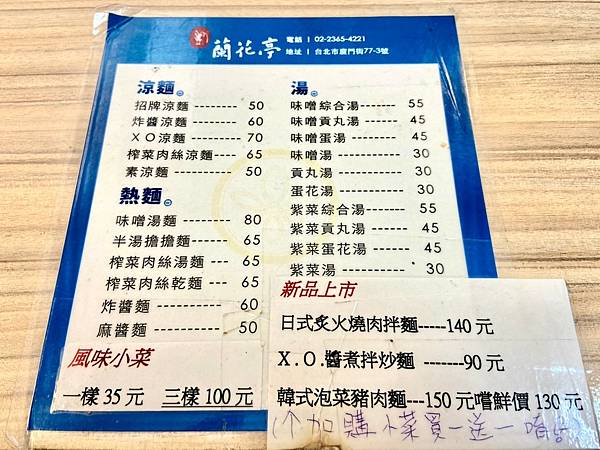 蘭花亭
電話 | 02-2365-4221
地址 | 台北市廈門街77-3號
涼麵
招牌涼麵 -------- 50
炸醬涼麵 -------- 60
XO涼麵 -------- 70
榨菜肉絲涼麵--- 65
素涼麵 -------- 50
熱麵
味噌湯麵 -------- 80
半湯擔擔麵 ------ 65
榨菜肉絲湯麵 --- 65
榨菜肉絲乾麵 --- 65
炸醬麵 -------- 60
麻醬麵 -------- 50
風味小菜
一樣 35 元 三樣 100 元
湯
味噌綜合湯------- 55
味噌貢丸湯 ------ 45
味噌蛋湯 -------- 45
味噌湯 ---------- 30
貢丸湯 ---------- 30
蛋花湯 ---------- 30
紫菜綜合湯------- 55
紫菜貢丸湯 ------ 45
紫菜蛋花湯 ------ 45
紫菜湯 ---------- 30
新品上市
日式炙火燒肉拌麵-----140 元
X.O.醬煮拌炒麵 -------90 元
韓式泡菜豬肉麵---150 元嚐鮮價 130 元
(↑加購小菜買一送一